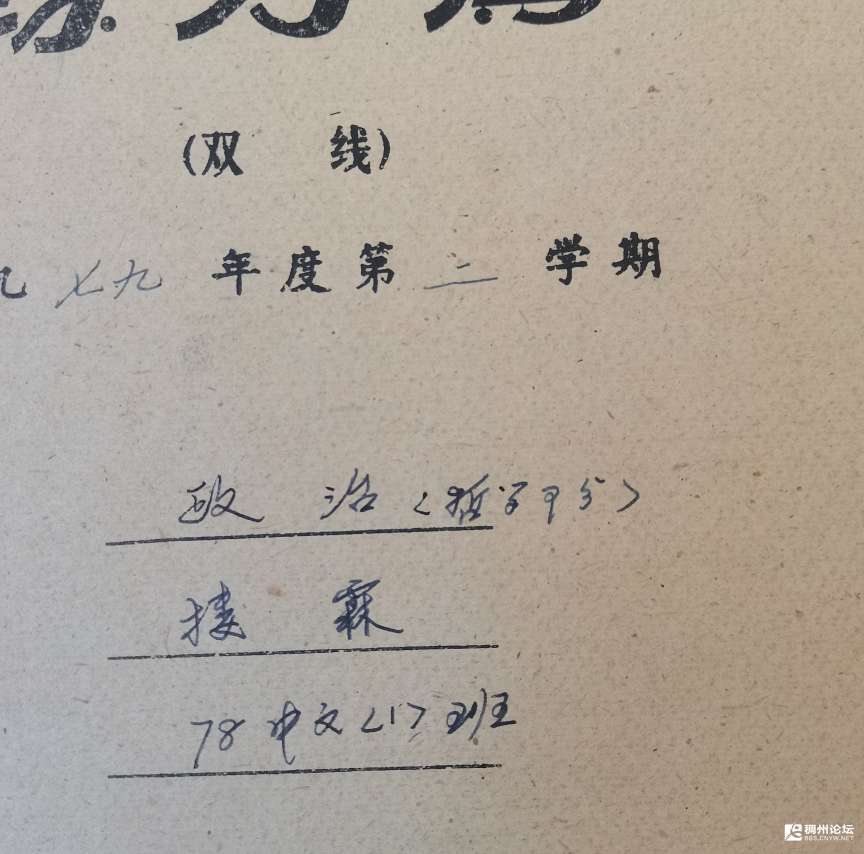 练习簿
(双 线)
九七九年度第二学期
政 治（哲学部分）
楼 霖
78中文<1>班
稠州论坛
BBS.CNYW.NET